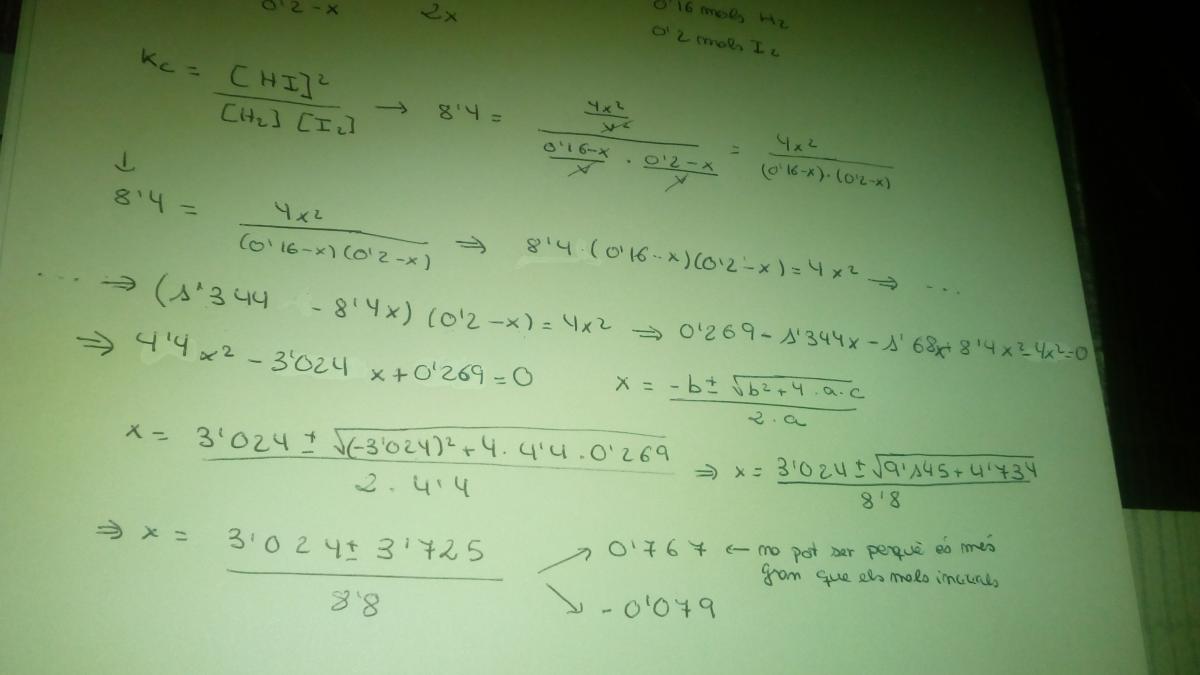 0'2-x 2x
0'16 mols H₂
0'2 mols I₂
Kc = [HI]² / [H₂] [I₂] → 8'4 = (4x²/V²) / (0'16-x/V · 0'2-x/V) = 4x² / (0'16-x)·(0'2-x)
↓
8'4 = 4x² / (0'16-x)(0'2-x) ⇒ 8'4·(0'16-x)(0'2-x) = 4x² ⇒ ...
... ⇒ (1'344 - 8'4x) (0'2-x) = 4x² ⇒ 0'269 - 1'344x - 1'68x + 8'4x² - 4x² = 0
⇒ 4'4x² - 3'024x + 0'269 = 0 x = -b ± √b² + 4·a·c / 2·a
x = 3'024 ± √(-3'024)² + 4·4'4·0'269 / 2·4'4 ⇒ x = 3'024 ± √9'145 + 4'734 / 8'8
⇒ x = 3'024 ± 3'725 / 8'8
↗ 0'767 ← no pot ser perquè és més
gran que els mols inicials
↘ -0'079